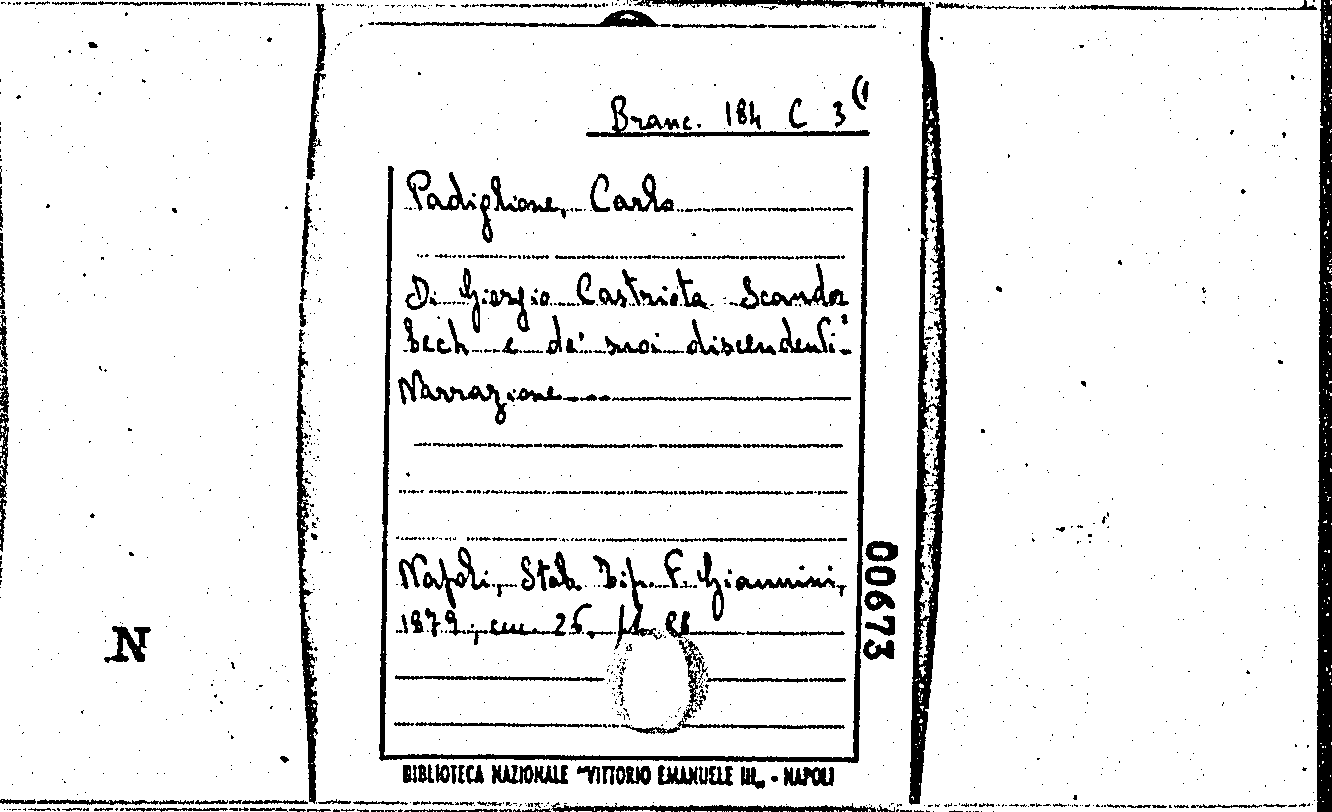 Branc. 184 C 3 (1
Padiglione, Carlo
Di Giorgio Castriota Scander
bech e de' suoi discendenti.
Narrazione....
Napoli, Stab. Tip. F. Giannini,
1879; cm 26.
00673
N
BIBLIOTECA NAZIONALE "VITTORIO EMANUELE III„ - NAPOLI